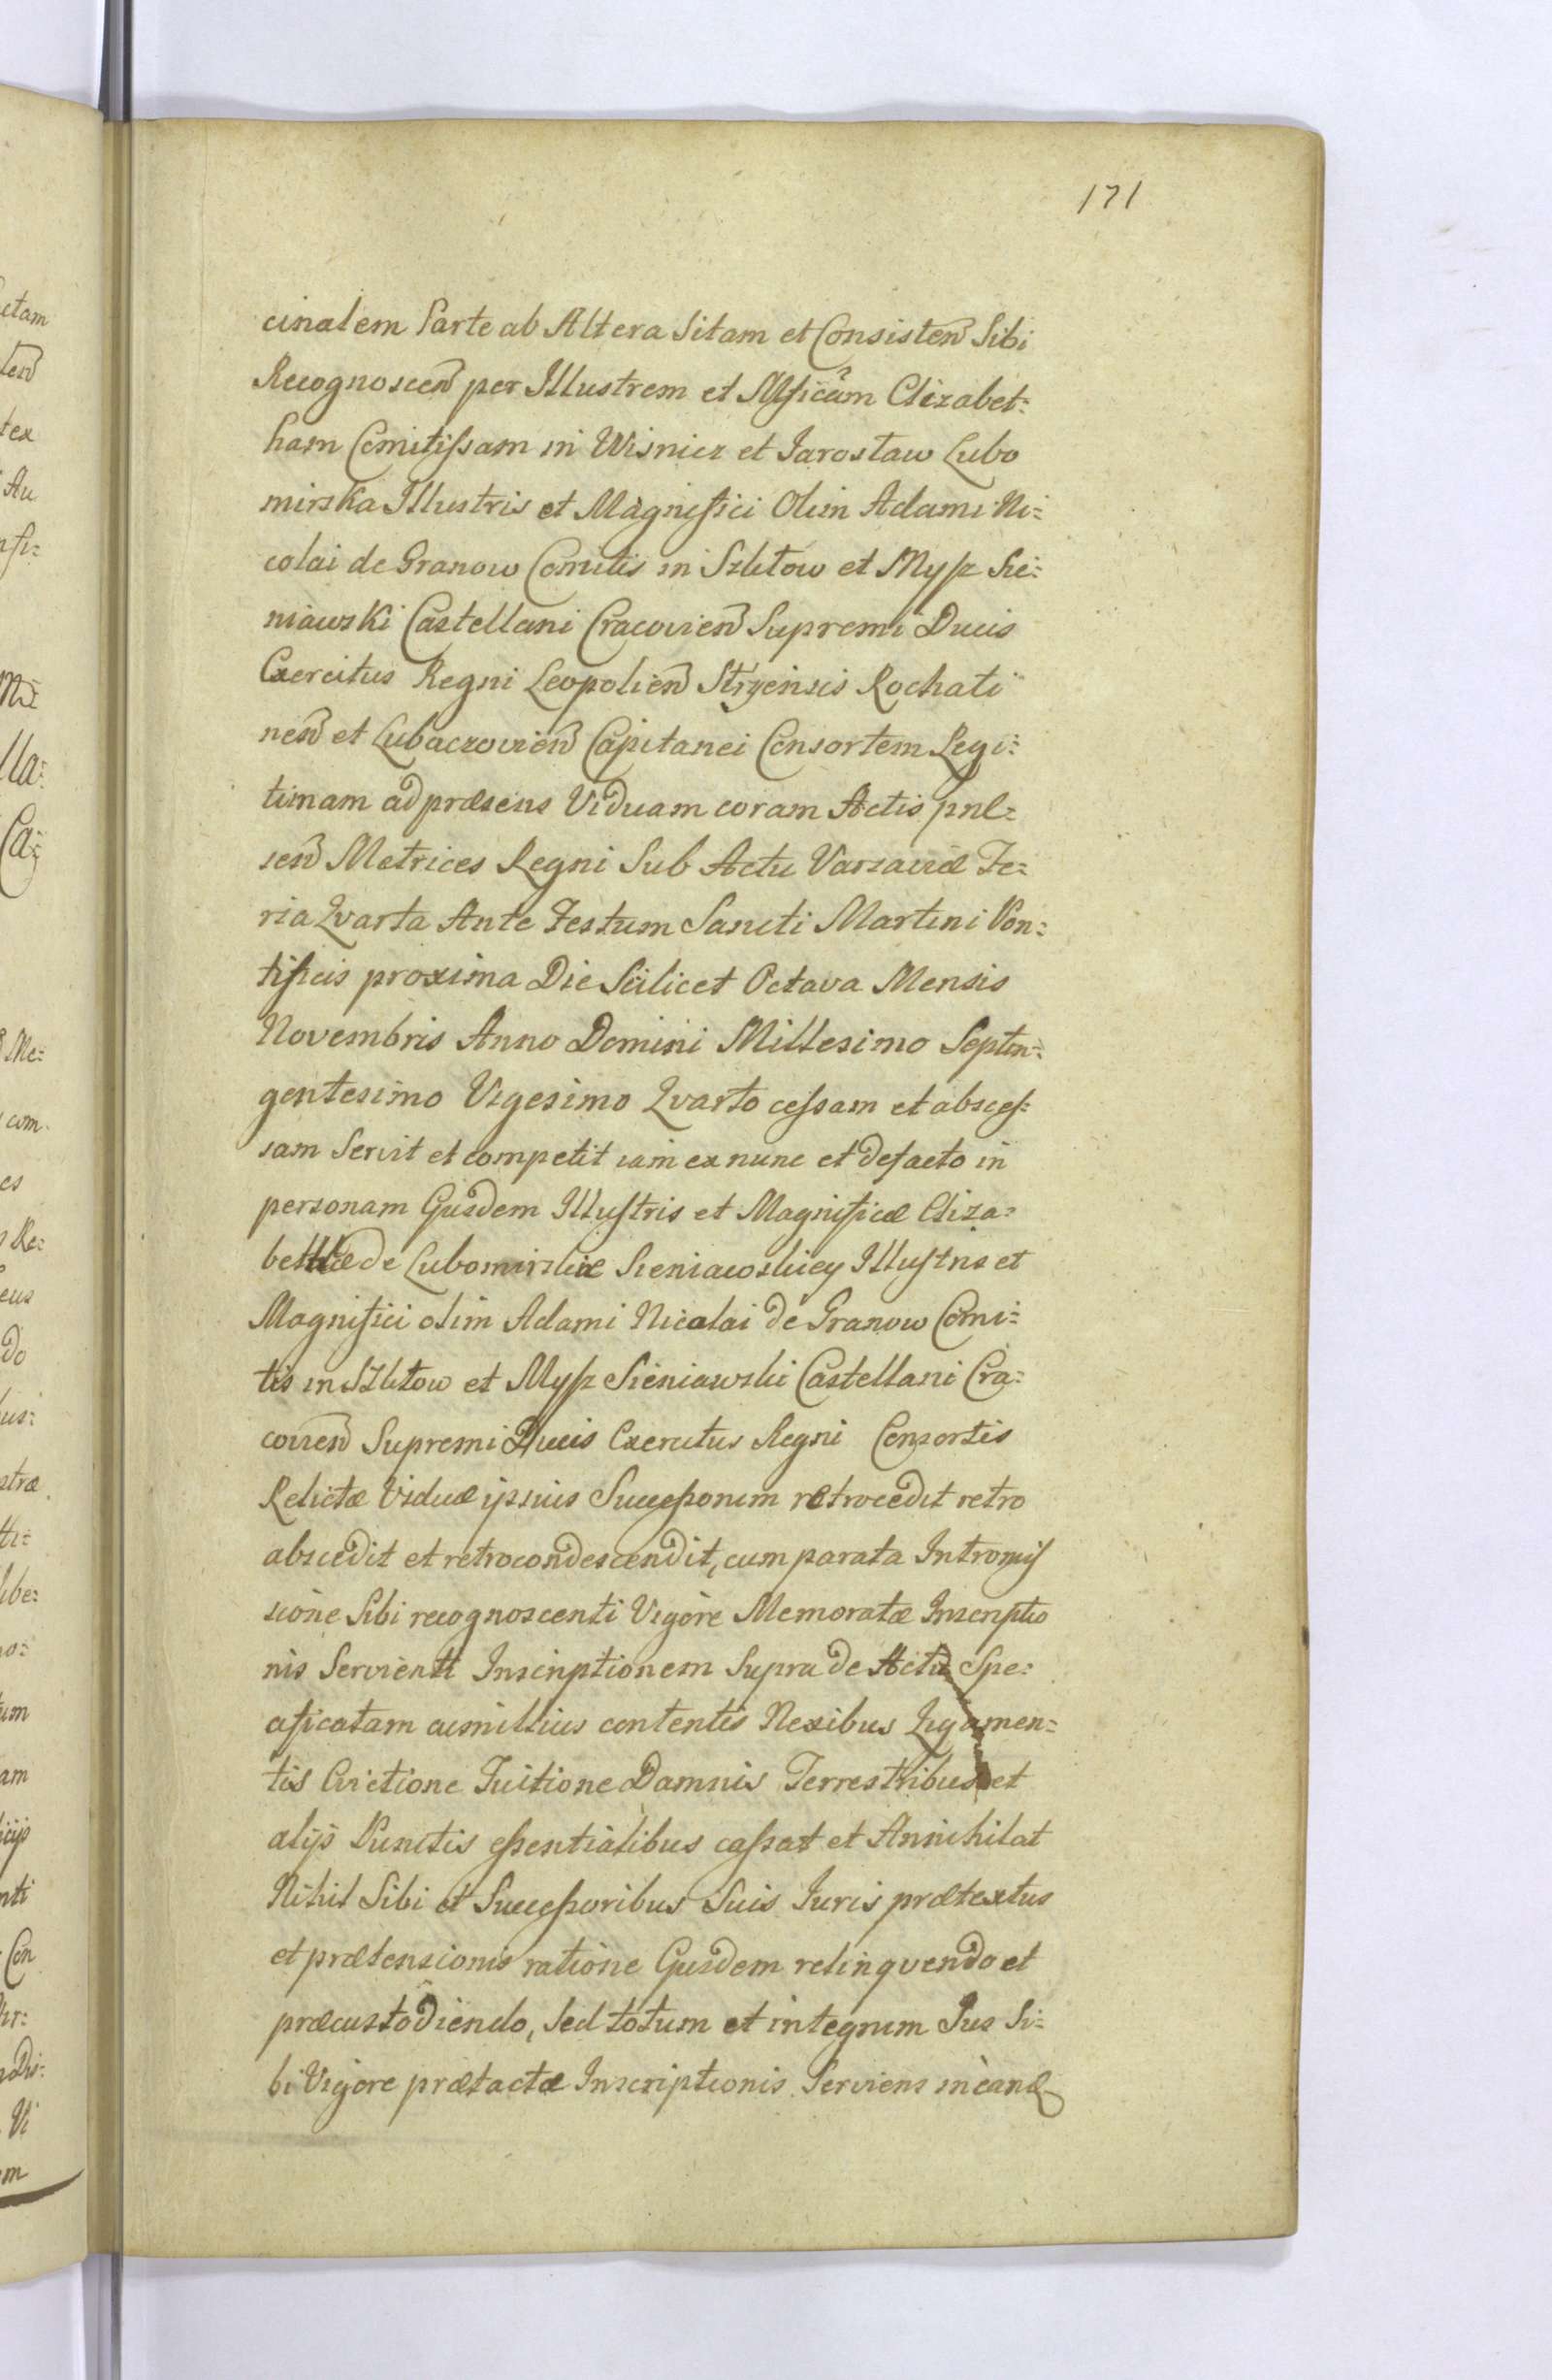 171
cinalem Parte ab Altera Sitam et Consisten Sibi
Recognoscen per Illustrem et Mficam Elizabet=
ham Comitissam in Wisnicz et Iarosław Lubo
mirska Illustris et Magnifici Olim Adami Ni=
colai de Granow Comitis in Szkłow et Mysz Sie=
niawski Castellani Cracovien Supremi Ducis
Exercitus Regni Leopolien Stryensis Rochati
nen et Lubaczovien Capitanei Consortem Legi=
timam ad præsens Viduam coram Actis pnl=
sen Metrices Regni Sub Actu Varsaviæ Fe=
ria Qvarta Ante Festum Sancti Martini Pon=
tificis proxima Die Scilicet Octava Mensis
Novembris Anno Domini Millesimo Septin=
gentesimo Vigesimo Qvarto cessam et absces=
sam Servit et competit iam ex nunc et defacto in
personam Ejusdem Illustris et Magnificæ Eliza=
bethæ de Lubomirskie Sieniawskiey Illustris et
Magnifici olim Adami Nicolai de Granow Comi=
tis in Szkłow et Mysz Sieniawski Castellani Cra=
covien Supremi Ducis Exercitus Regni Consortis
Relictæ Viduæ ipsius Successorum retrocedit retro
abscedit et retrocondescendit, cum parata Intromis
sione Sibi recognoscenti Vigore Memoratæ Inscriptio
nis Servienti Inscriptionem Supra de Actu Spe=
cificatam cum illius contentis Nexibus Ligamen=
tis Evictione Tuitione Damnis Terrestribus et
alijs Punctis essentialibus cassat et Annihilat
Nihil Sibi et Successoribus Suis Iuris prætextus
et prætensionis ratione Ejusdem relinqvendo et
præcustodiendo, Sed totum et integrum Jus Si=
bi Vigore prætactæ Inscriptionis Serviens in eand